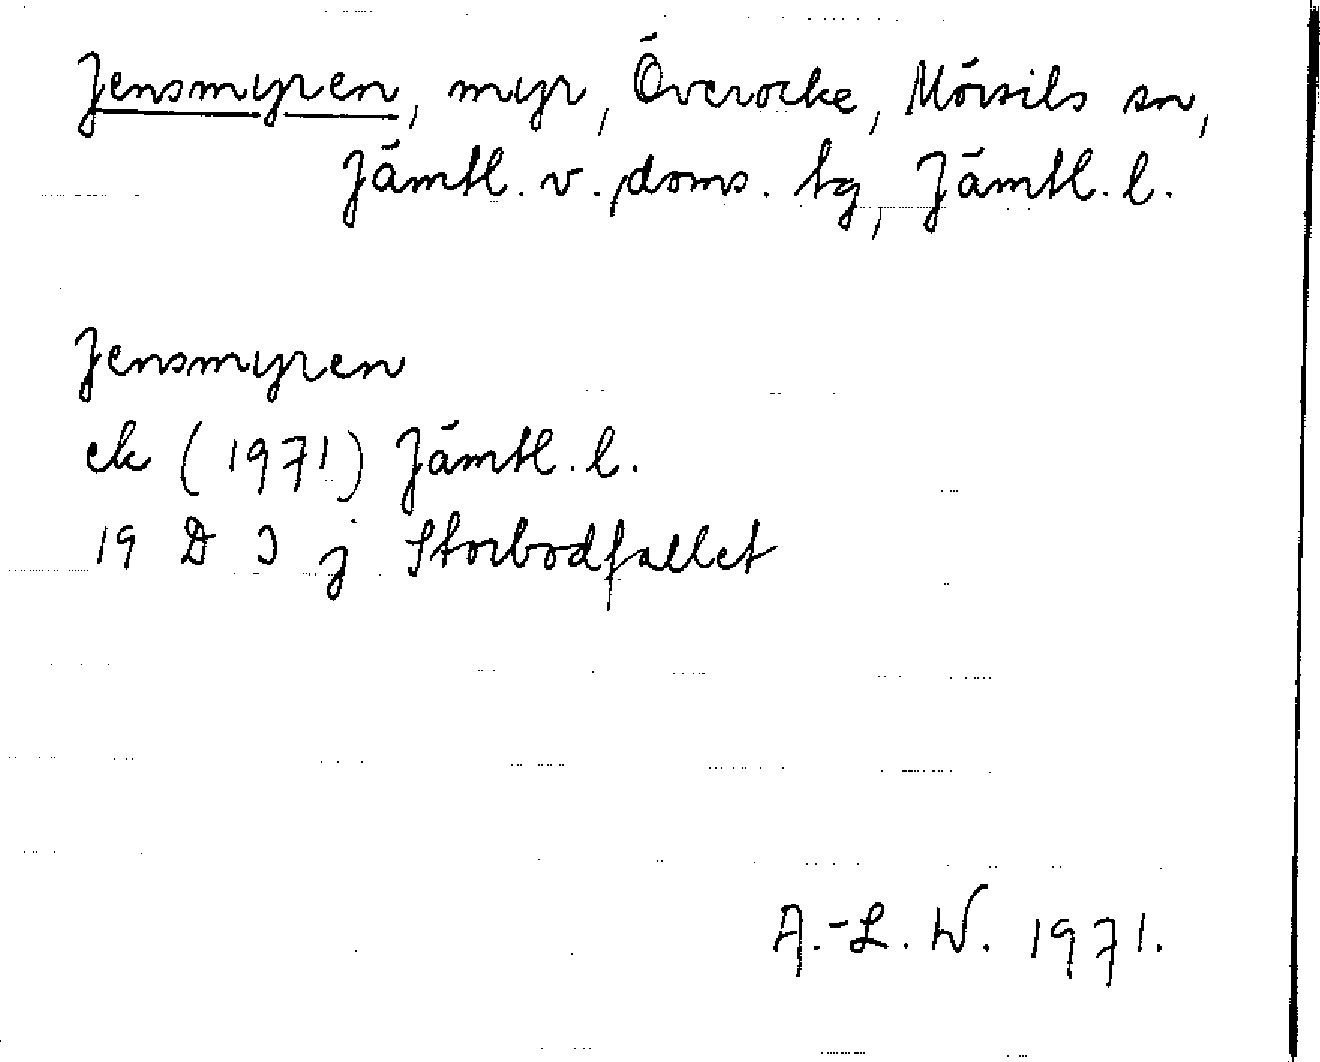 Jensmyren, myr, Överocke, Mörsils sn,
Jämtl. v. doms. tg, Jämtl. l.
Jensmyren
ek (1971) Jämtl. l.
19 D J j Storbodfallet
A.-L. W. 1971.